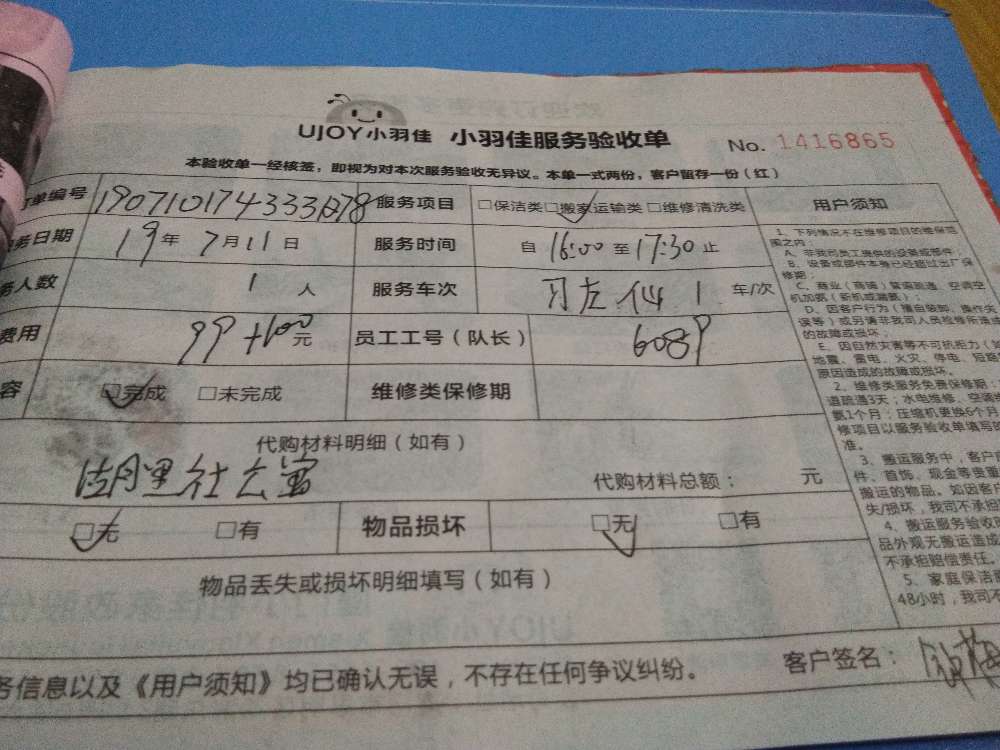 UJOY小羽佳 小羽佳服务验收单 No. 1416865
本验收单一经核签，即视为对本次服务验收无异议。本单一式两份，客户留存一份（红）
单编号 190710174333378 服务项目 □保洁类□搬家运输类 □维修清洗类 用户须知
务日期 19年 7月 11日 服务时间 自 16:00 至 17:30 止
务人数 1 人 服务车次 1 车/次
费用 99+100元 员工工号（队长） 6089
容 □完成 □未完成 维修类保修期
代购材料明细（如有）
湖里社会 代购材料总额： 元
□无 □有 物品损坏 □无 □有
物品丢失或损坏明细填写（如有）
务信息以及《用户须知》均已确认无误，不存在任何争议纠纷。 客户签名：
1、下列情况不在维修项目的维保范
围之内：
A、非我司员工提供的设备或部件；
B、设备或部件本身已经超过出厂保
修期；
C、商业（商铺）管道疏通、空调空
机加氨（新机或漏氨）；
D、因客户行为（擅自装卸、操作失
误等）或另请非我司人员检修所造成
的故障或损坏；
E、因自然灾害等不可抗拒力（如
地震、雷电、火灾、停电、短路
原因造成的故障或损坏。
2、维修类服务免费保修期：
道疏通3天；水电维修、空调
氨1个月；压缩机更换6个月
修项目以服务验收单填写的
准。
3、搬运服务中，客户
件、首饰、现金等贵重
搬运的物品。如因客户
失/损坏，我司不承担
4、搬运服务验收
品外观无搬运造成
不承担赔偿责任。
5、家庭保洁
48小时，我司不